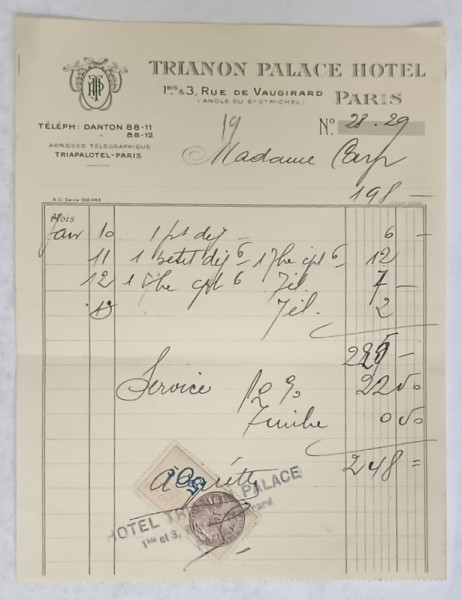 TRIANON PALACE HOTEL
1BIS & 3, RUE DE VAUGIRARD
(ANGLE DU Bd St MICHEL)
PARIS
TÉLÉPH: DANTON 88-11
88-12
ADRESSE TÉLÉGRAPHIQUE
TRIAPALOTEL-PARIS
19
No. 28-29
Madame
198 —
R.C. Seine
MOIS
Janv 10 1 pt dej — 6 —
11 1 petit dej 6 — 1 The cpt 6 — 12
12 1 The cpt 6 Tél. 7 —
13 Tél. 2
225 —
Service 10% 22 50
Timbre 0 50
248 =
HOTEL PALACE
1bis et 3,